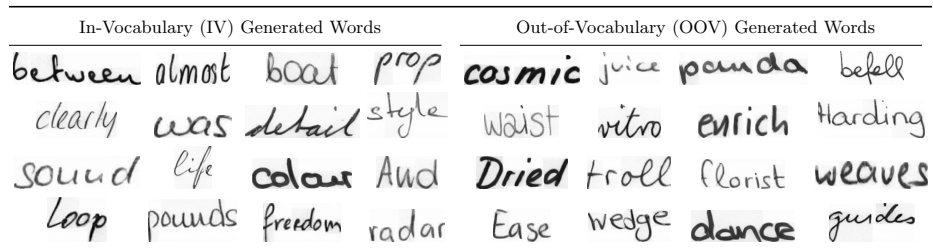 In-Vocabulary (IV) Generated Words Out-of-Vocabulary (OOV) Generated Words
between almost boat prop cosmic juice panda befell
clearly was detail style waist vitro enrich Harding
sound life colour And Dried troll florist weaves
Loop pounds freedom radar Ease wedge dance guides